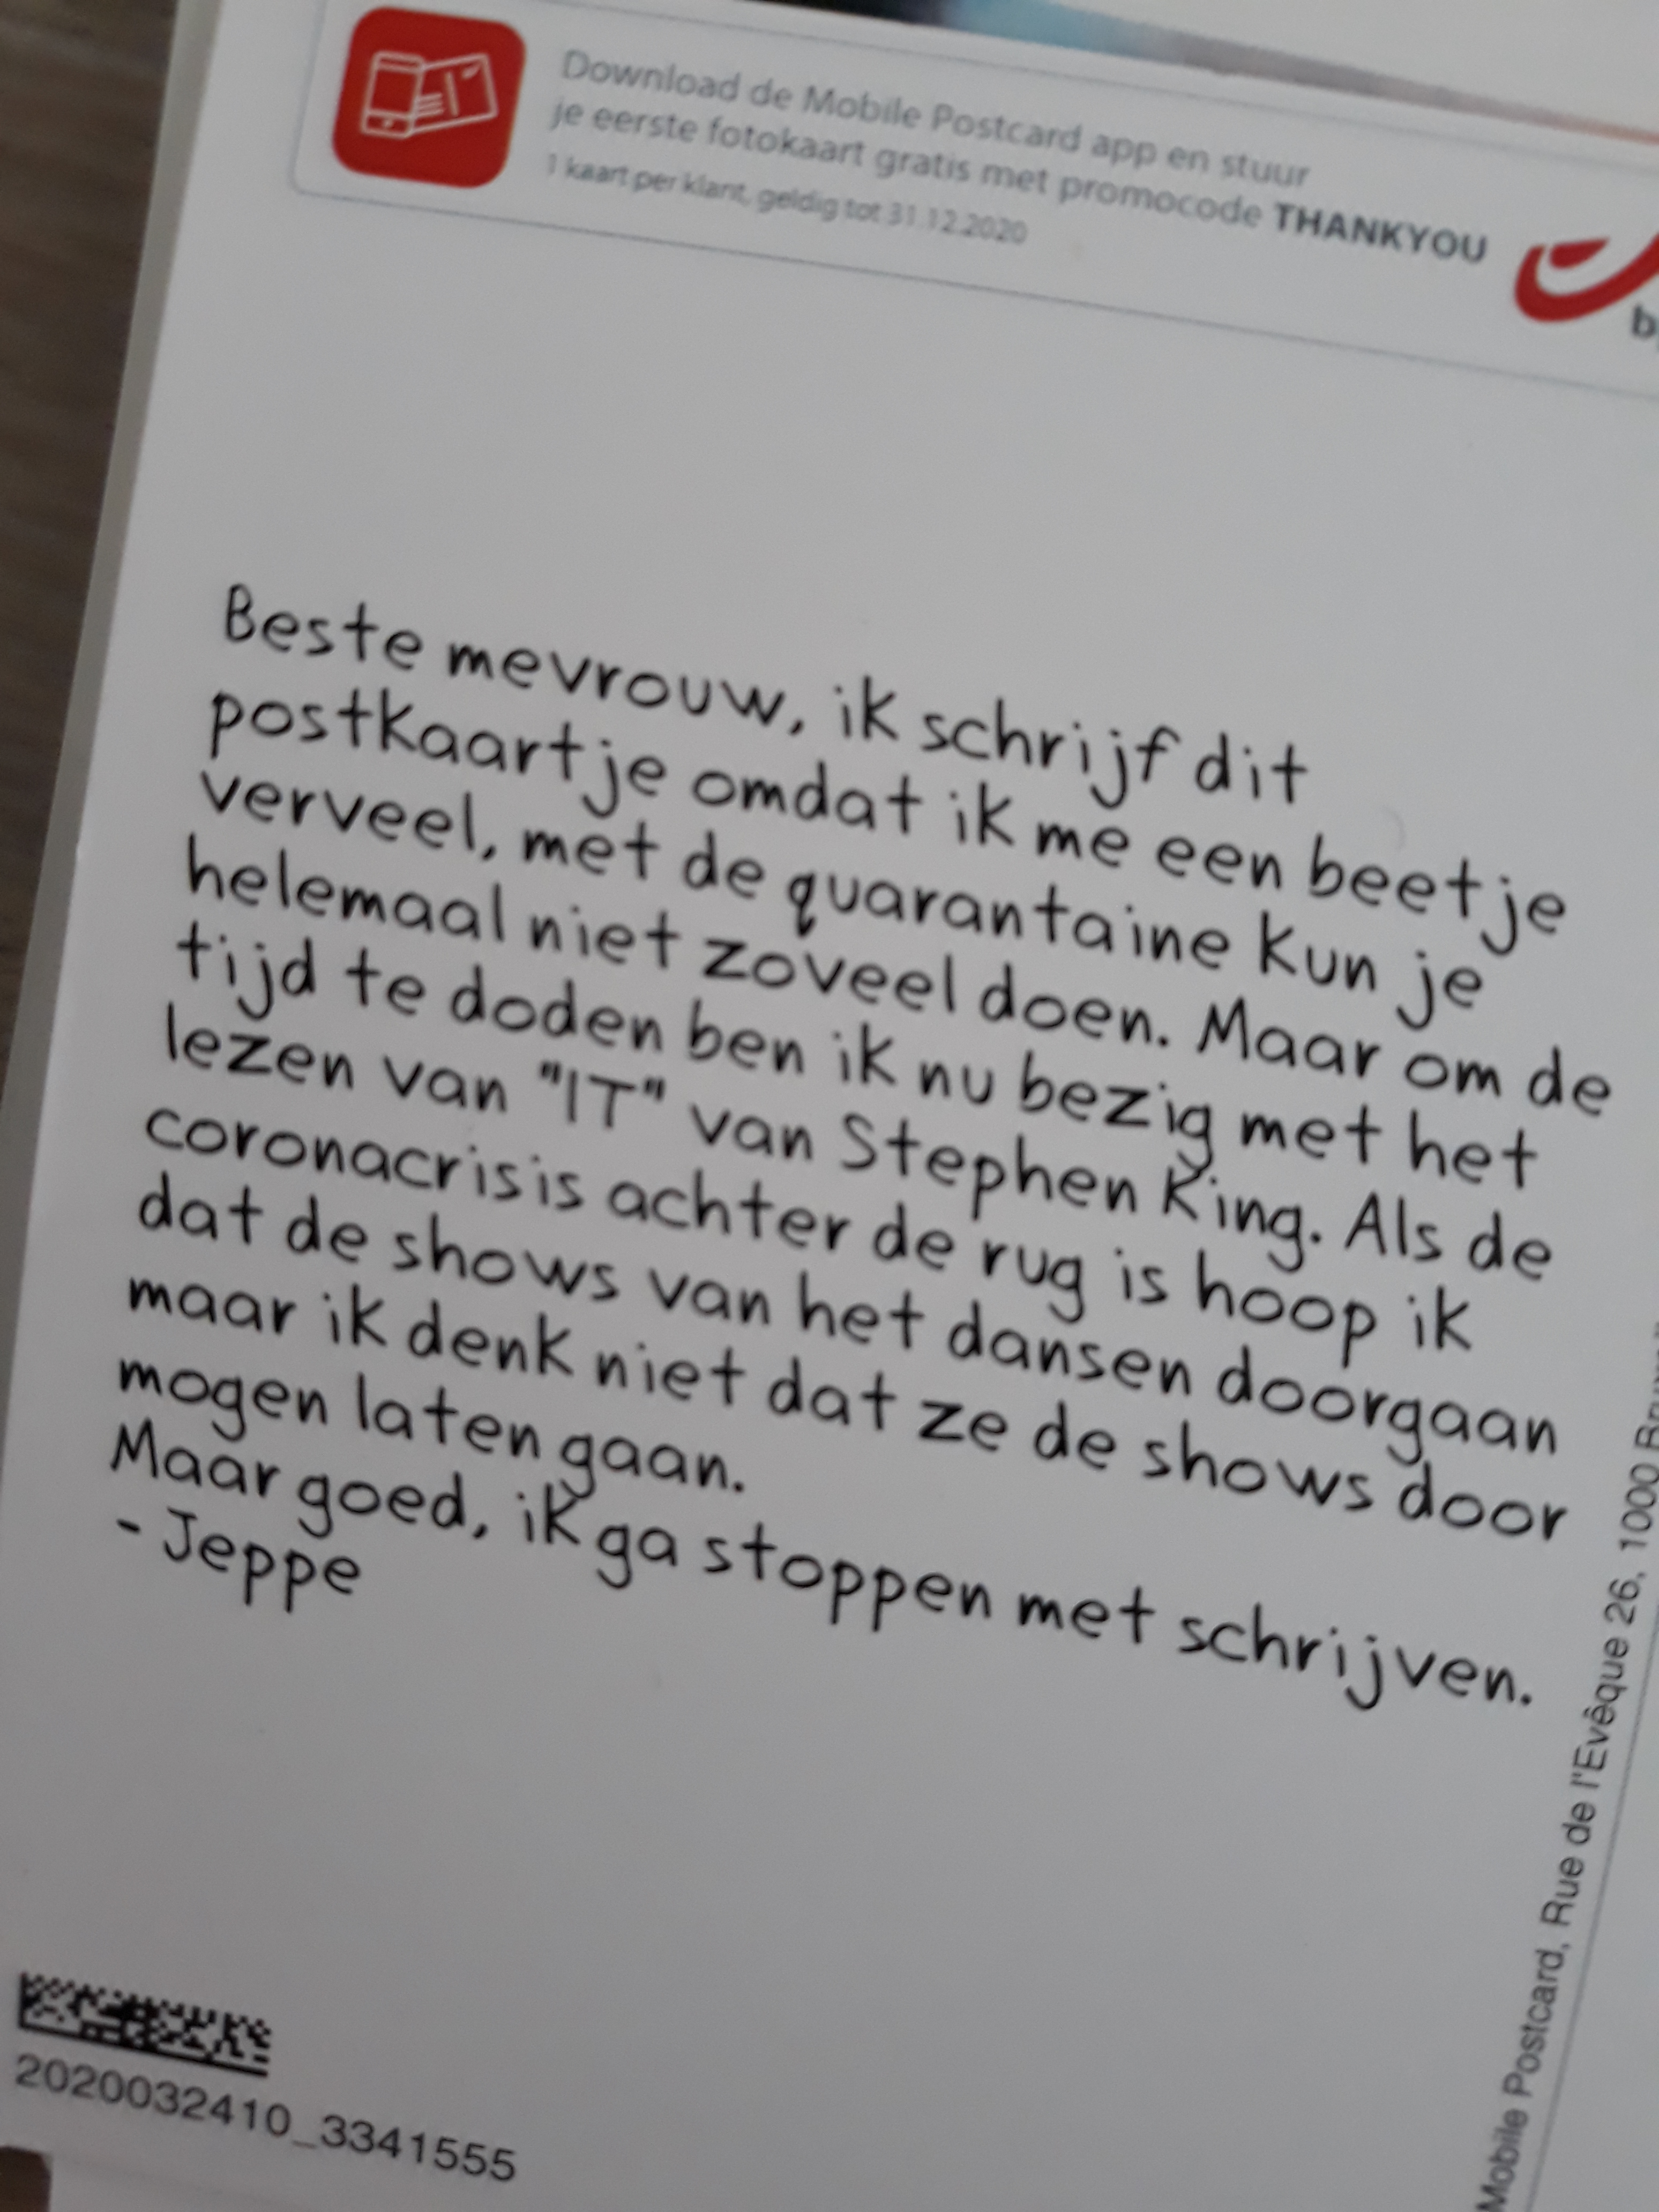 Download de Mobile Postcard app en stuur
je eerste fotokaart gratis met promocode THANKYOU
1 kaart per klant, geldig tot 31.12.2020
Beste mevrouw, ik schrijf dit
postkaartje omdat ik me een beetje
verveel, met de quarantaine kun je
helemaal niet zoveel doen. Maar om de
tijd te doden ben ik nu bezig met het
lezen van "IT" van Stephen King. Als de
coronacrisis achter de rug is hoop ik
dat de shows van het dansen doorgaan
maar ik denk niet dat ze de shows door
mogen laten gaan.
Maar goed, ik ga stoppen met schrijven.
- Jeppe
Mobile Postcard, Rue de l'Evêque 26, 1000
2020032410_3341555